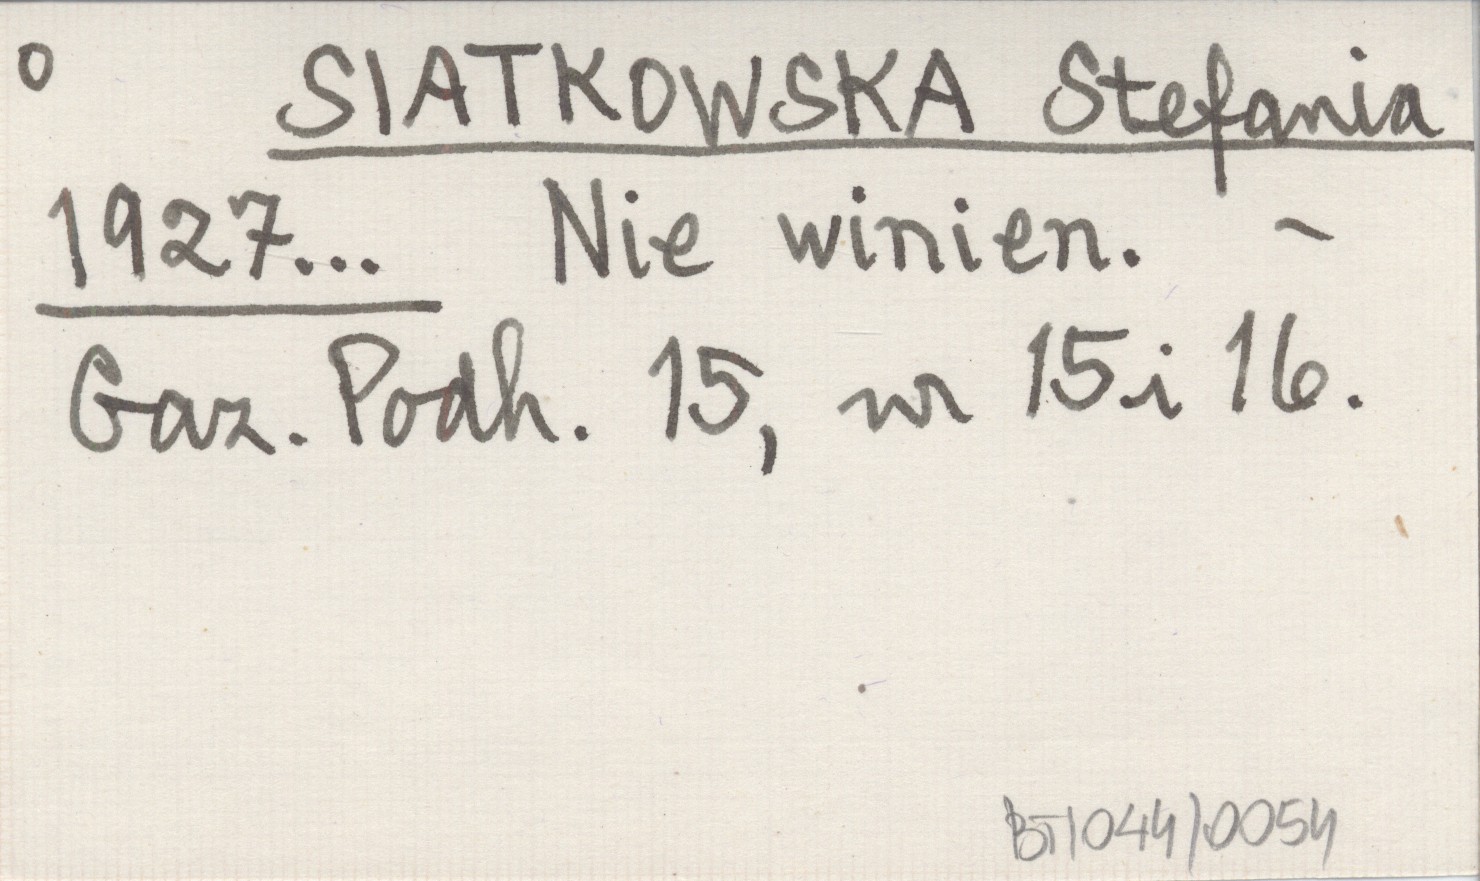 o SIATKOWSKA Stefania
1927... Nie winien. -
Gaz. Podh. 15, nr 15 i 16.
BT/044/0054